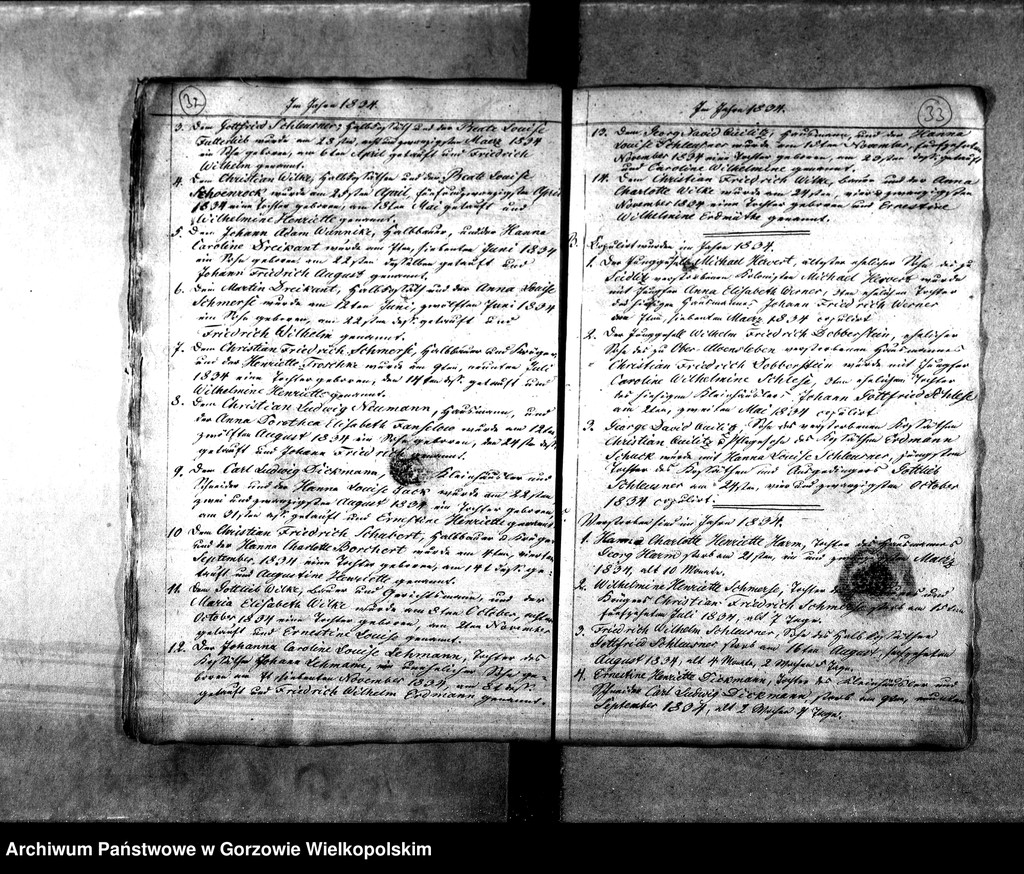 32
Im Jahre 1834.
3. Dem Gottfried Schleusner, Halbkossäth und der Beate Louise
Futterlieb wurde am 28sten, acht und zwanzigsten Maerz 1834
ein Sohn geboren, am 6ten April getauft und Friedrich
Wilhelm genannt.
4. Dem Christian Wilke, Halbkossäthen und der Beate Louise
Schoenrock wurde am 25sten April, fünfundzwanzigsten April
1834 eine Tochter geboren, am Mai getauft und
Wilhelmine Henriette genannt.
5. Dem Johann Adam Wannicke, Halbbauer, und der Hanna
Caroline Dreikant wurde am 7ten, siebenten Juni 1834
ein Sohn geboren, am 22sten desselben getauft und
Johann Friedrich August genannt.
6. Dem Martin Dreikant, Halbkossäth und der Anna Louise
Schmerse wurde am 12ten Juni, zwölften Juni 1834
ein Sohn geboren, am 22sten desst. getauft und
Friedrich Wilhelm genannt.
7. Dem Christian Friedrich Schmerse, Halbbauer und Krüger,
und der Henriette Troschke wurde am 9ten, neunten Juli
1834 eine Tochter geboren, den 14ten desst. getauft und
Wilhelmine Henriette genannt.
8. Dem Christian Ludwig Neumann, Hausmann, und
der Anna Dorothea Elisabeth Fanselow wurde am 12ten
zwölften August 1834 ein Sohn geboren, den 24sten desst.
getauft und Johann Friedrich genannt.
9. Dem Carl Ludwig Dickmann, Kleinhändler und
Schneider und der Hanna Louise Sack wurde am 22sten
zwei und zwanzigsten August 1834 ein Tochter geboren
am 31sten desst. getauft und Ernestine Henriette genannt
10 Dem Christian Friedrich Schubert, Halbbauer u Krüger
und der Hanna Charlotte Borchert wurde am 4ten, vierten
September, 1834 eine Tochter geboren, am 14t desst. ge-
tauft und Augustine Henriette genannt.
11. Dem Gottlieb Wilke, Bauer und Gerichtsmann, und der
Maria Elisabeth Wilke wurde am 8ten October, achten
October 1834 eine Tochter geboren, am 2ten November
getauft und Ernestine Louise genannt.
12. Der Johanna Caroline Louise Lehmann, Tochter des
Kossäthen Johann Lehmann, ein unehelicher Sohn ge-
boren am 7t siebenten November 1834, am desst.
getauft und Friedrich Wilhelm Erdmann genannt.
33
Im Jahre 1834.
13. Dem Georg David Quilitz, Hausmann, und der Hanna
Louise Schleusner wurde am 15ten November, fünfzehnten
November 1834 eine Tochter geboren, am 23sten desst. getauft
und Caroline Wilhelmine genannt.
14. Dem Christian Friedrich Wilke, Bauer und der Anna
Charlotte Wilke wurde am 24sten, vier und zwanzigsten
November 1834 eine Tochter geboren und Ernestine
Wilhelmine Erdmuthe genannt.
B. Copulirt wurden im Jahre 1834.
1. Der Junggeselle Michael Herwert, ältester ehelicher Sohn des zu
verstorbenen Kolonisten Michael Herwert wurde
mit Jungfer Anna Elisabeth Werner, 3ten ehelichen Tochter
des hiesigen Hausmannes Johann Friedrich Werner
den 7ten, siebenten Maerz 1834 copulirt
2. Der Junggesell Wilhelm Friedrich Dobberstein, ehelicher
Sohn des zu Ober-Alvensleben verstorbenen Hausmannes
Christian Friedrich Dobberstein wurde mit Jungfer
Caroline Wilhelmine Schlese, 3ten ehelichen Tochter
des hiesigen Kleinhändlers Johann Gottfried Schlese
am 2ten, zweiten Mai 1834 copulirt
3. George David Quilitz, Sohn des verstorbenen Kossäthen
Christian Quilitz u Pflegesohn des Kossäthen Erdmann
Schuck wurde mit Hanna Louise Schleusner, jüngsten
Tochter des Kossäthen und Ausgedingers Gottlieb
Schleusner am 24sten, vier und zwanzigsten October
1834 copulirt.
Verstorben sind im Jahre 1834.
1. Hanna Charlotte Henriette Harm, Tochter des Hausmannes
Georg Harm starb am 21sten, ein und Maerz
1834, alt 10 Monate.
2. Wilhelmine Henriette Schmerse, Tochter des und
Krügers Christian Friedrich Schmerse starb am 15ten
fünfzehnten Juli 1834, alt 7 Tage.
3. Friedrich Wilhelm Schleusner, Sohn des Halbkossäthen
Gottfried Schleusner starb am August,
August 1834, alt 4 Monate, 2 Wochen 5 Tage.
4. Ernestine Henriette Dickmann, Tochter des Kleinhändler und
Schneider Carl Ludwig Dickmann starb am 9ten, neunten
September 1834, alt 2 Wochen 4 Tage.
Archiwum Państwowe w Gorzowie Wielkopolskim